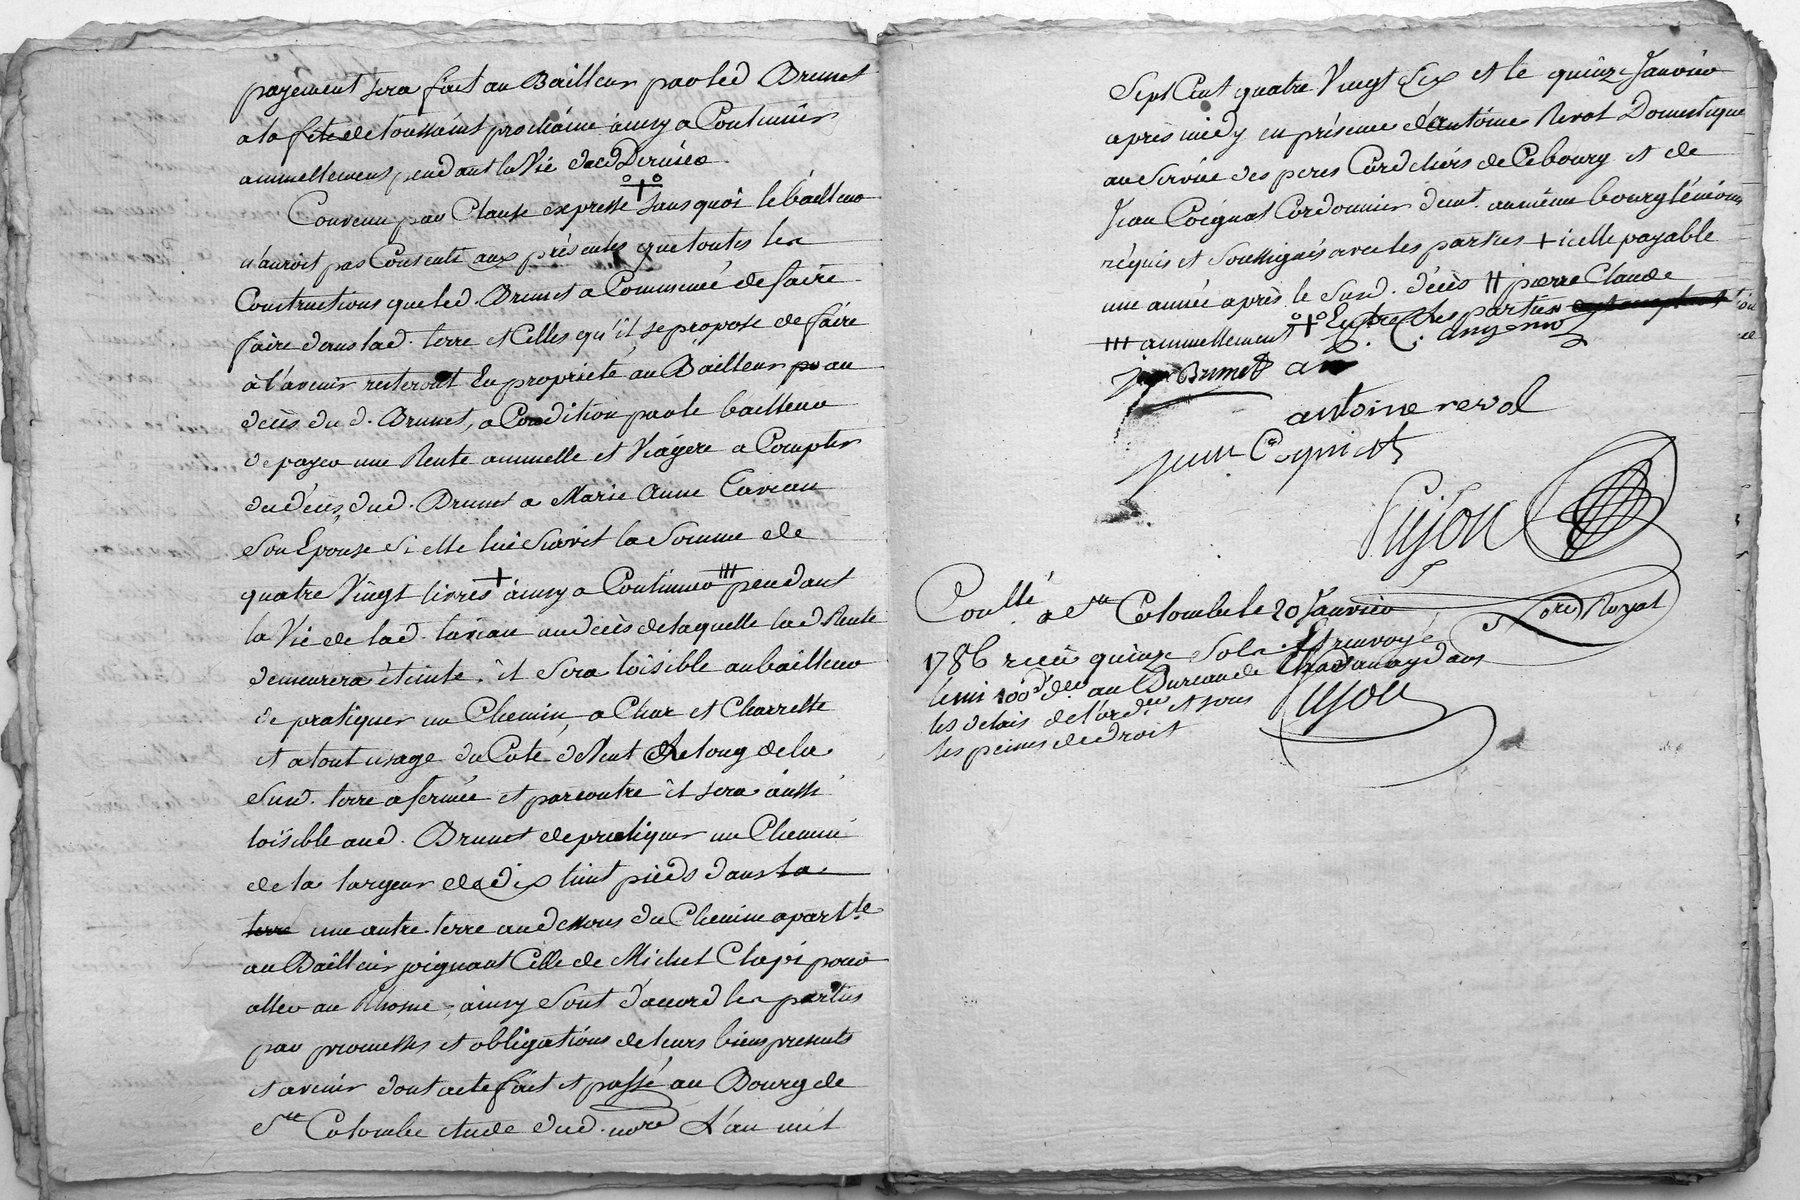 payement sera fait au Bailleur par led Brunet
a la fête de toussaint prochaine ainsy a Continuer
annuellement pendant la Vie dud Dernier.
Convenu par Clause expresse sans quoi le bailleur
n'auroit pas Consenti aux présentes que toutes les
Constructions que led. Brunet a Commencé de faire
faire dans lad. terre et Celles qu'il se propose de faire
à l'avenir resteront En propriété au Bailleur au
décès du d. Brunet, a Condition par le bailleur
de payer une Rente annuelle et Viagere a Compter
du décès dud. Brunet a Marie Anne
Son Epouse Si elle lui Survit la Somme de
quatre Vingt livres + ainsy a Continuer III pendant
la Vie de lad. au décès de laquelle lad Rente
demeurera éteinte. il Sera loisible au bailleur
de pratiquer un Chemin a Char et Charrette
et a tout usage du Coté de Vent Le long de la
Susd. terre afermée et par contre il sera aussi
loisible aud. Brunet de pratiquer un Chemin
de la largeur de dix huit pieds dans la
terre une autre terre au dessous du Chemin apart.te
au Bailleur joignant Celle de Michel pour
aller au Rhosne, ainsy Sont d'accord les parties
par promesses et obligations de leurs biens presents
et avenir dont acte fait et passé au Bourg de
Ste Colombe étude dud. nore L'an mil
Sept Cent quatre Vingt Six et le quinze Janvier
après midy en présence d'antoine Revol Domestique
au Service des peres Cordeliers de Ce bourg et de
Jean Coignat Cordonnier demt. au même bourg témoins
réquis et Soussignés avec les parties + icelle payable
une année après le Susd. décès II pierre Claude
III annuellement Entre les parties
Brunet
antoine revol
jean Cognat
Pujon
Nore Royal
Conllé a Ste Colombe le 20 Janvier
1786 reçu quinze Sols. & renvoyé
le mi 100e d.er au Bureau de Chavanay dans
les delais de l'ord.ce et sous
les peines de droit
Pujon